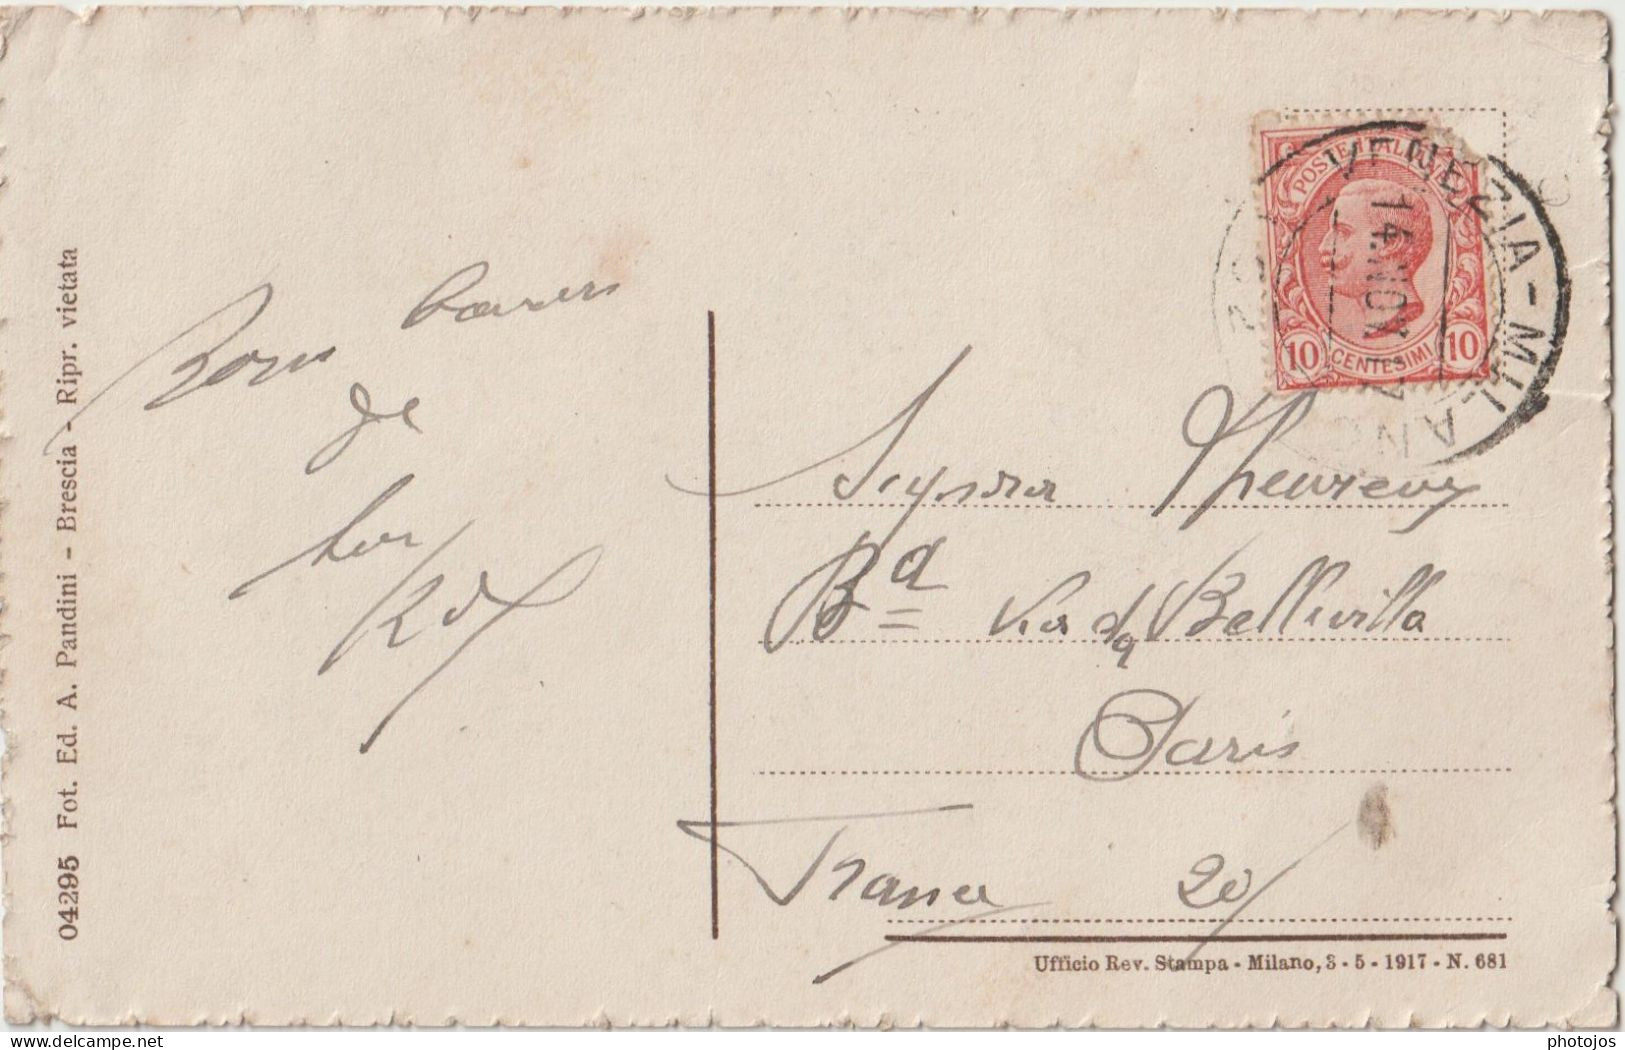 04295 Fot. Ed. A. Pandini - Brescia - Ripr. vietata
Bons
de
POSTE ITALIANE
10 CENTESIMI 10
VENEZIA - MILANO
14. NOV. 17
Signora
Bd Via da Bellevilla
Paris
France 20
Ufficio Rev. Stampa - Milano, 3 - 5 - 1917 - N. 681
delcampe.net
photojos